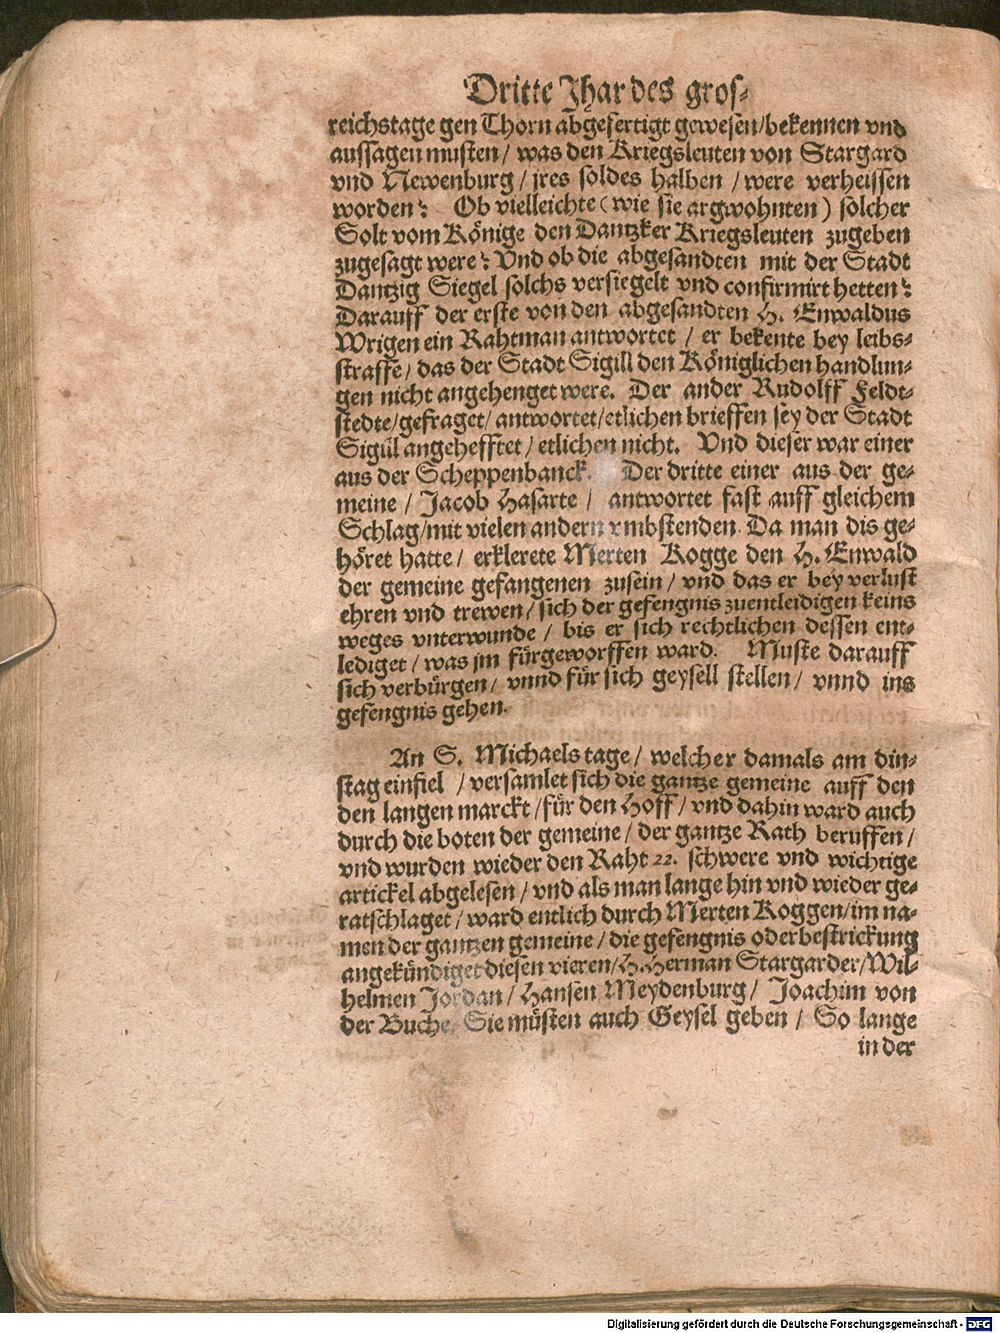 Dritte Jhar des gros⸗
reichstage gen Thorn abgefertigt gewesen/bekennen vnd
aussagen musten/ was den Kriegsleuten von Stargard
vnd Newenburg/ jres soldes halben /were verheissen
worden? Ob vielleichte (wie sie argwohnten) solcher
Solt vom Könige den Dantzker Kriegsleuten zugeben
zugesagt were? Vnd ob die abgesandten mit der Stadt
Dantzig Siegel solchs versiegelt vnd confirmirt hetten?
Darauff der erste von den abgesandten H. Enwaldus
Wrigen ein Rahtman antwortet / er bekente bey leibs⸗
straffe/ das der Stadt Sigill den Königlichen handlun⸗
gen nicht angehenget were. Der ander Rudolff Feldt⸗
stedte/gefraget/ antwortet/etlichen brieffen sey der Stadt
Sigill angehefftet/ etlichen nicht. Vnd dieser war einer
aus der Scheppenbanck. Der dritte einer aus der ge⸗
meine / Jacob Hasarte / antwortet fast auff gleichem
Schlag/mit vielen andern vmbstenden. Da man dis ge⸗
höret hatte/ erklerete Merten Kogge den H. Enwald
der gemeine gefangenen zusein/ vnd das er bey verlust
ehren vnd trewen/ sich der gefengnis zuentleidigen keins
weges vnterwunde / bis er sich rechtlichen dessen ent⸗
lediget/ was jm fürgeworffen ward. Muste darauff
sich verbürgen/ vnnd für sich geysell stellen/ vnnd ins
gefengnis gehen.
An S. Michaels tage/ welcher damals am din⸗
stag einfiel /versamlet sich die gantze gemeine auff den
den langen marckt /für den Hoff/ vnd dahin ward auch
durch die boten der gemeine/ der gantze Rath beruffen/
vnd wurden wieder den Raht 22. schwere vnd wichtige
artickel abgelesen/ vnd als man lange hin vnd wieder ge⸗
ratschlaget/ ward entlich durch Merten Koggen/im na⸗
men der gantzen gemeine/ die gefengnis oder bestrickung
angekündiget diesen vieren/H.Herman Stargarder/Wil⸗
helmen Jordan/ Hansen Meydenburg/ Joachim von
der Buche. Sie müsten auch Geysel geben / So lange
in der
Digitalisierung gefördert durch die Deutsche Forschungsgemeinschaft - DFG